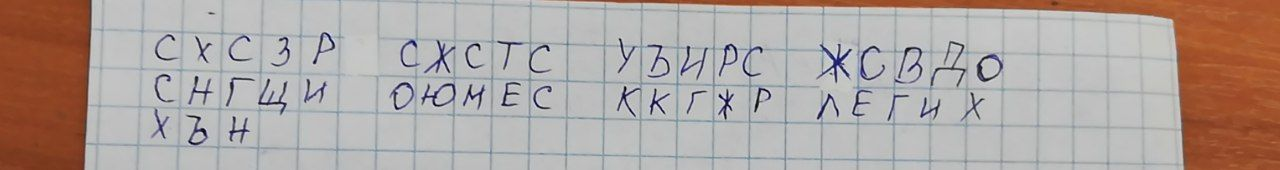 СХСЗР СЖСТС УЪИРС ЖСВДО
СНГЩИ ОЮМЕС ККГЖР ЛЕГИХ
ХЪН